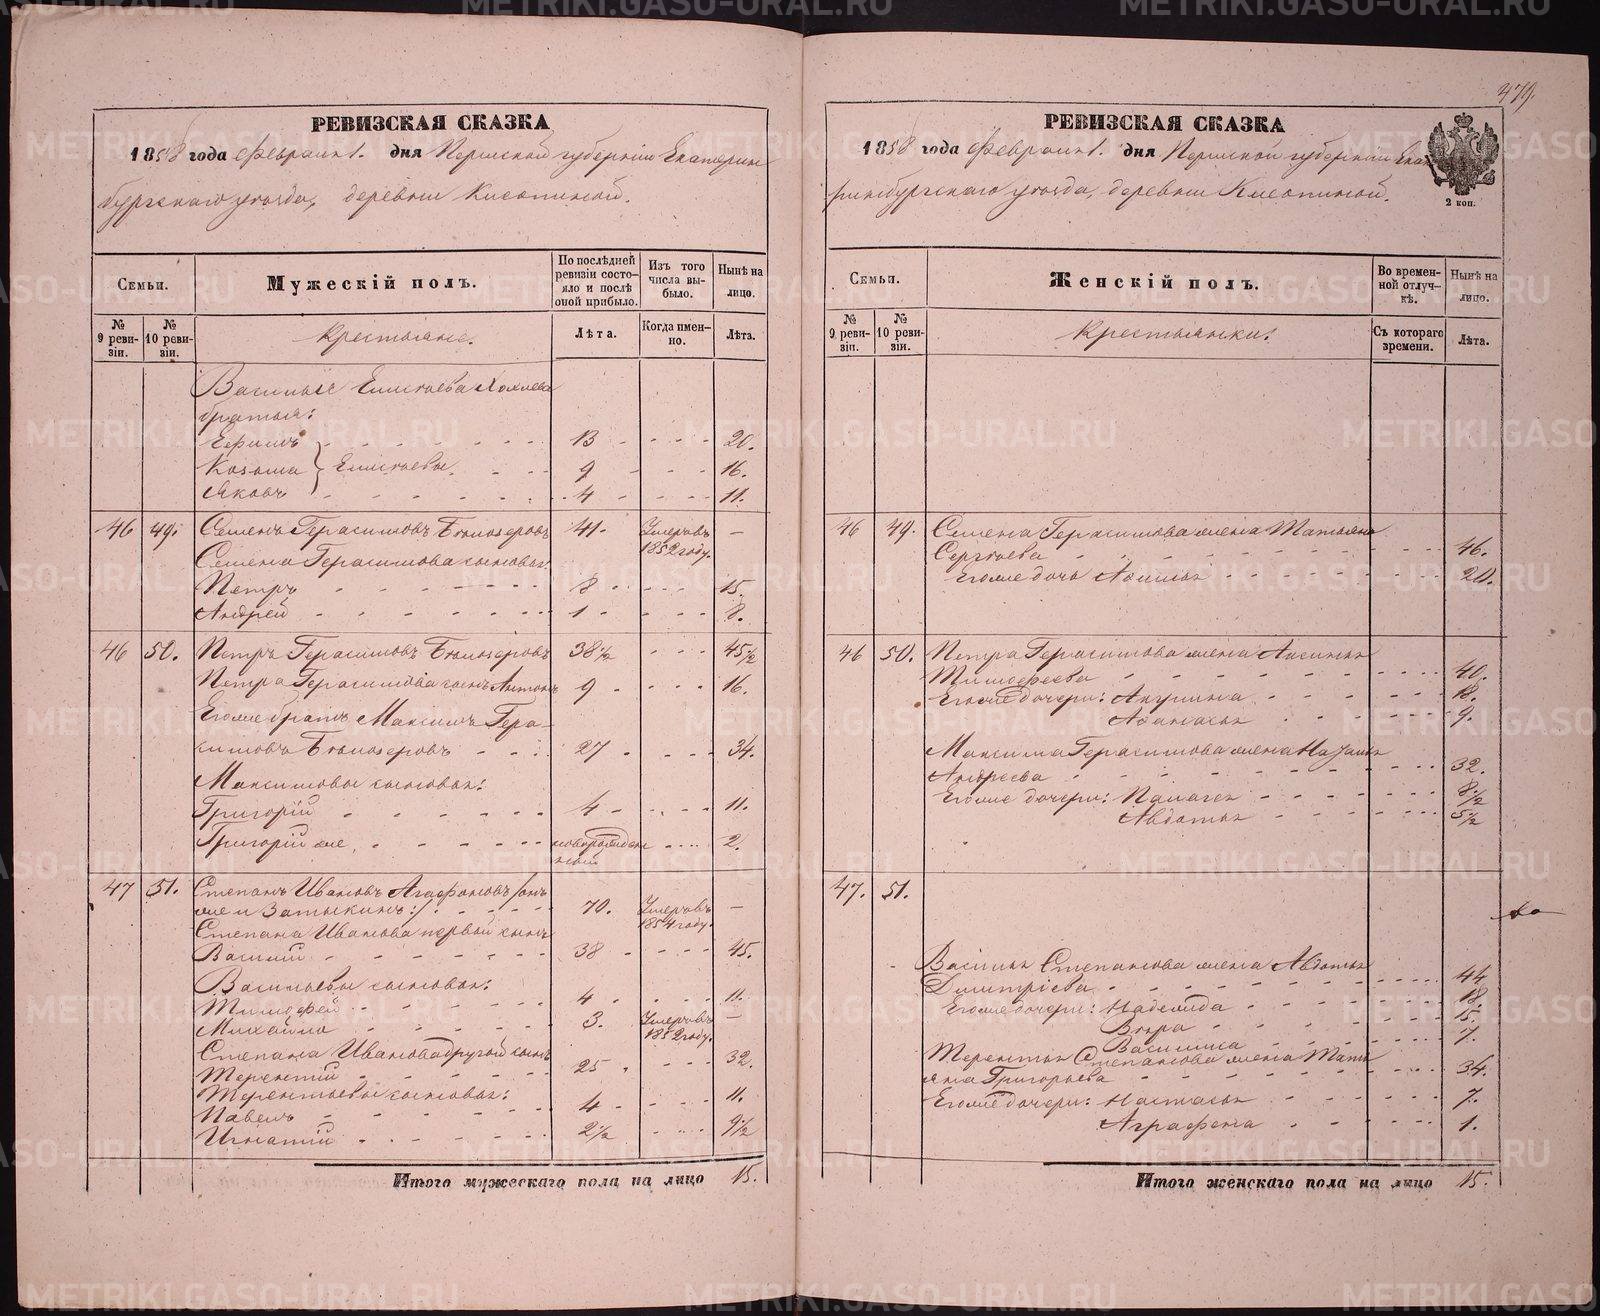 479.
РЕВИЗСКАЯ СКАЗКА
1858 года Февраля 1. дня Пермской губернiи Екатерин
бургскаго уѣзда, деревни
Семьи.
Мужескiй полъ.
По послѣдней ревизiи состояло и послѣ оной прибыло.
Изъ того числа выбыло.
Нынѣ на лицо.
№ 9 ревизiи.
№ 10 ревизiи.
Крестьяне.
Лѣта.
Когда именно.
Лѣта.
Василья Елисѣева
братья:
Ефимъ - 13 - 20.
Козьма } Елисѣевы - 9 - 16.
Яковъ - 4 - 11.
46 49. Семенъ Герасимовъ Бѣлозеровъ 41. Умеръ въ 1852 году. —
Семена Герасимова сыновья
Петръ - 8 - 15.
Андрей - 1 - 8.
46 50. Петръ Герасимовъ Бѣлозеровъ 38½ - 45½
Петра Герасимова сынъ Антонъ 9 - 16.
Его же братъ Максимъ Гера-
симовъ Бѣлозеровъ - 27 - 34.
Максимовы сыновья:
Григорiй - 4 - 11.
Григорiй же - новорожденный - 2.
47 51. Степанъ Ивановъ Агафоновъ /онъ
же и Затыкинъ:/ - 70. Умеръ въ 1854 году. —
Степана Иванова первой сынъ
Василiй - 38 - 45.
Васильевы сыновья:
Тимофей - 4 - 11.
Михайло - 3. Умеръ въ 1852 году. —
Степана Иванова другой сынъ
Терентiй - 25 - 32.
Терентьевы сыновья:
Павелъ - 4 - 11.
Игнатiй - 2½ - 9½
Итого мужескаго пола на лицо 15.
РЕВИЗСКАЯ СКАЗКА
1858 года Февраля 1. дня Пермской губернiи Ека
ринбургскаго уѣзда, деревни
2 коп.
Семьи.
Женскiй полъ.
Во временной отлучкѣ.
Нынѣ на лицо.
№ 9 ревизiи.
№ 10 ревизiи.
Крестьянки.
Съ котораго времени.
Лѣта.
46 49. Семена Герасимова жена Татьяна
Сергѣева - 46.
Его же дочь - 20.
46 50. Петра Герасимова жена Аксинья
Тимофеева - 40.
Его же дочери: Акулина - 18.
Афанасья - 9.
Максима Герасимова жена
Андреева - 32.
Его же дочери: Палагея - 8½
Авдотья - 5½
47. 51.
Василья Степанова жена Авдотья
Димитрiева - 44
Его же дочери: Надежда - 18.
Вѣра - 15.
Василиса - 7.
Терентья Степанова жена Тать
яна Григорьева - 34.
Его же дочери: Настасья - 7.
Аграфена - 1.
Итого женскаго пола на лицо 15.
METRIKI.GASO-URAL.RU